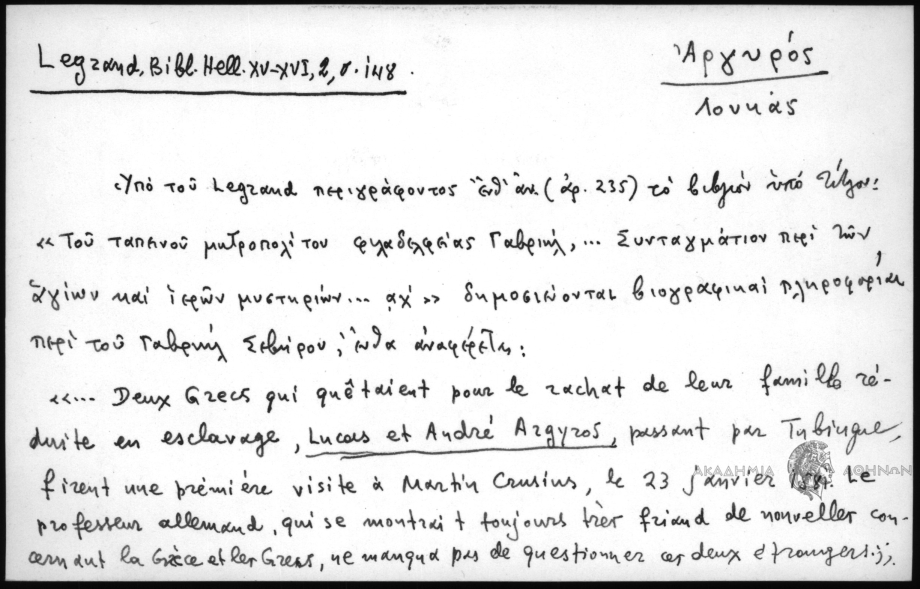 Legrand, Bibl. Hell. XV-XVI, 2, σ. 148.
Ἀργυρός
Λουκάς
Ὑπό τοῦ Legrand περιγράφοντος ἐνθ' ἀν. (ἀρ. 235) τό βιβλίον ὑπό τίτλον:
«Τοῦ ταπεινοῦ μητροπολίτου Φιλαδελφείας Γαβριήλ, ... Συνταγμάτιον περί τῶν
ἁγίων καί ἱερῶν μυστηρίων... αχ́» δημοσιεύονται βιογραφικαί πληροφορίαι
περί τοῦ Γαβριήλ Σεβήρου, ἔνθα ἀναφέρεται:
«... Deux Grecs qui quêtaient pour le rachat de leur famille ré-
duite en esclavage, Lucas et André Argyros, passant par Tubingue,
firent une première visite à Martin Crusius, le 23 janvier Le
professeur allemand, qui se montrait toujours très friand de nouvelles con-
cernant la Grèce et les Grecs, ne manqua pas de questionner ces deux étrangers.»
ΑΚΑΔΗΜΙΑ ΑΘΗΝΩΝ